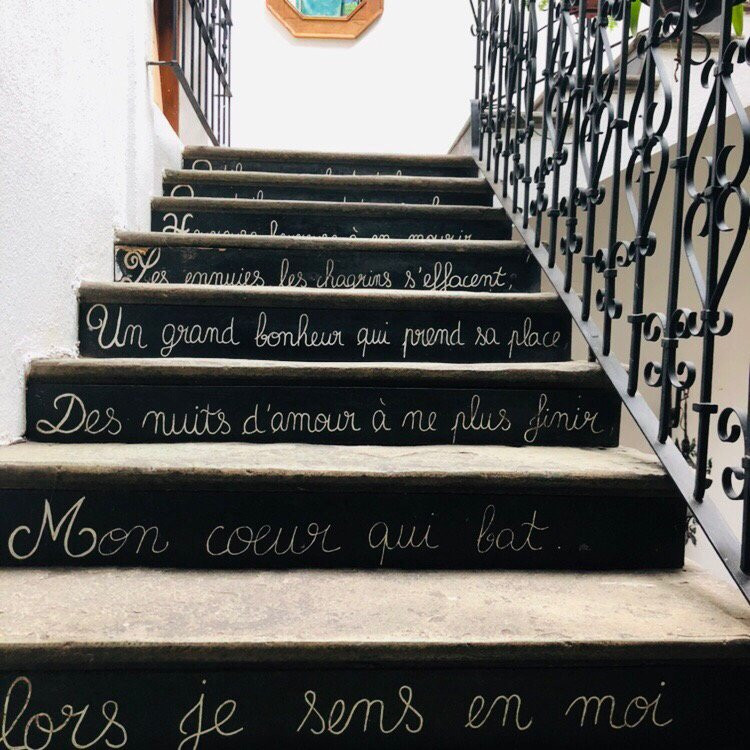 à en mourir
Les ennuies les chagrins s'effacent,
Un grand bonheur qui prend sa place
Des nuits d'amour à ne plus finir
Mon coeur qui bat..
lors je sens en moi